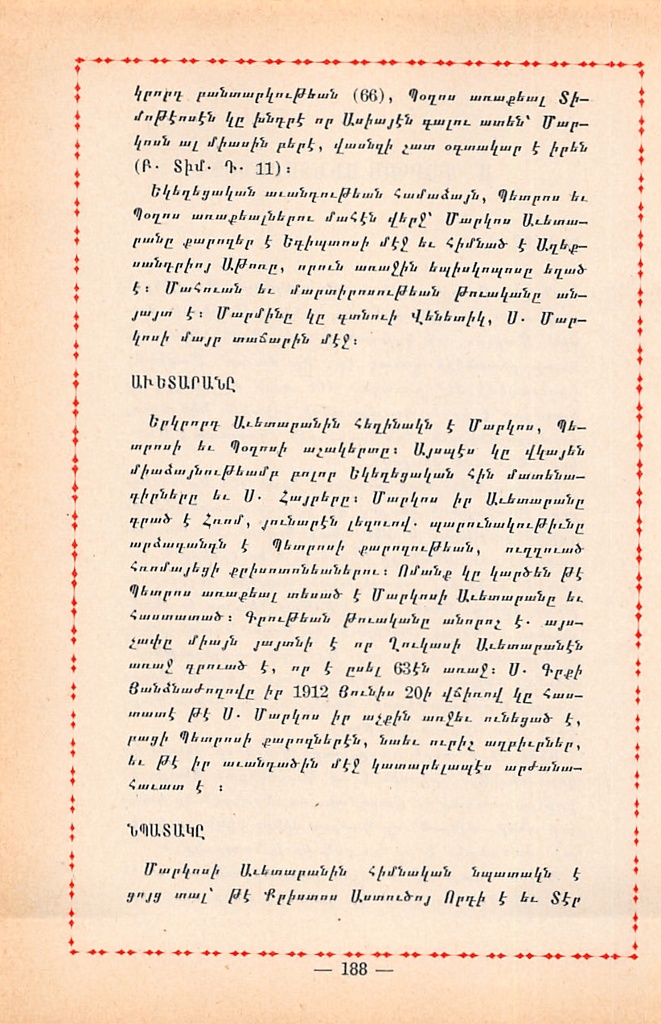 կրորդ բանտարկութեան (66), Պօղոս առաքեալ Տի–
մոթէոսէն կը խնդրէ որ Ասիայէն գալու ատեն՝ Մար–
կոսն ալ միասին բերէ, վասնզի շատ օգտակար է իրեն
(Բ. Տիմ. Դ. 11)։
Եկեղեցական աւանդութեան համաձայն, Պետրոս եւ
Պօղոս առաքեալներու մահէն վերջ՝ Մարկոս Աւետա–
րանը քարոզեր է Եգիպտոսի մէջ եւ հիմնած է Աղեք–
սանդրիոյ Աթոռը, որուն առաջին եպիսկոպոսը եղած
է։ Մահուան եւ մարտիրոսութեան թուականը ան–
յայտ է։ Մարմինը կը գտնուի Վենետիկ, Ս. Մար–
կոսի մայր տաճարին մէջ։
ԱՒԵՏԱՐԱՆԸ
Երկրորդ Աւետարանին հեղինակն է Մարկոս, Պե–
տրոսի եւ Պօղոսի աշակերտը։ Այսպէս կը վկայեն
միաձայնութեամբ բոլոր Եկեղեցական հին մատենա–
գիրները եւ Ս. Հայրերը։ Մարկոս իր Աւետարանը
գրած է Հռոմ, յունարէն լեզուով. պարունակութիւնը
արձագանգն է Պետրոսի քարոզութեան, ուղղուած
Հռոմայեցի քրիստոնեաներու։ Ոմանք կը կարծեն թէ
Պետրոս առաքեալ տեսած է Մարկոսի Աւետարանը եւ
հաստատած։ Գրութեան թուականը անորոշ է. այս–
չափը միայն յայտնի է որ Ղուկասի Աւետարանէն
առաջ գրուած է, որ է ըսել 63էն առաջ։ Ս. Գրքի
Յանձնաժողովը իր 1912 Յունիս 20ի վճիռով կը հաս–
տատէ թէ Ս. Մարկոս իր աչքին առջեւ ունեցած է,
բացի Պետրոսի քարոզներէն, նաեւ ուրիշ աղբիւրներ,
եւ թէ իր աւանդածին մէջ կատարելապէս արժանա–
հաւատ է ։
ՆՊԱՏԱԿԸ
Մարկոսի Աւետարանին հիմնական նպատակն է
ցոյց տալ՝ թէ Քրիստոս Աստուծոյ Որդի է եւ Տէր
— 188 —